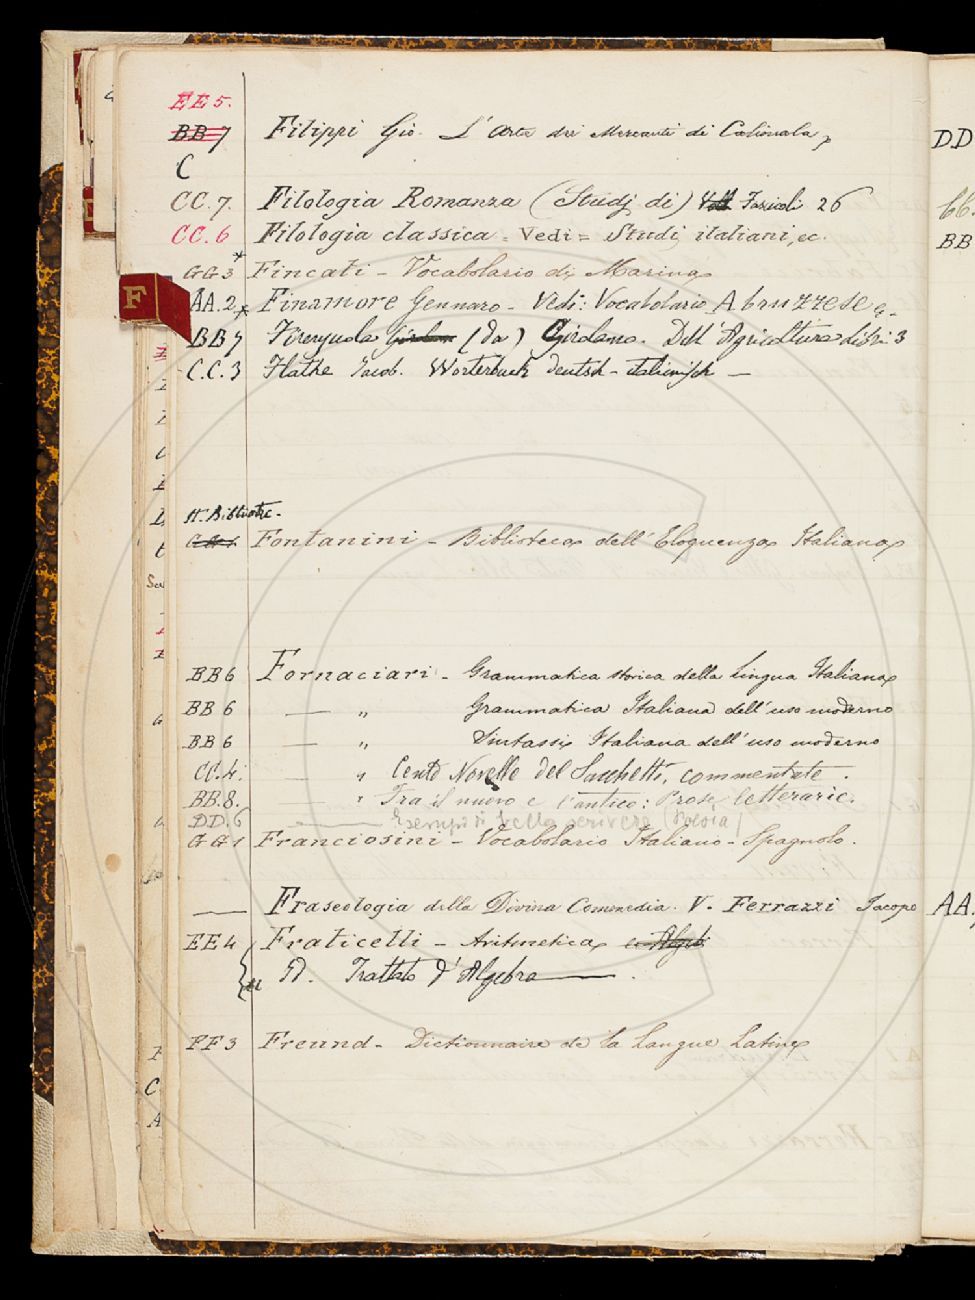 EE 5.
BB 7 Filippi Gio. L'Arte dei Mercanti di Calimala
C
CC.7. Filologia Romanza (Studj di) Fascicoli 26
CC.6 Filologia classica = Vedi = Studi italiani, ec.
GG 3 Fincati - Vocabolario di Marina
F
AA.2 Finamore Gennaro - Vedi: Vocabolario Abruzzese
BB 7 Firenzuola (da) Girolamo. Dell'Agricoltura libri 3
C.C.3 Flathe Jacob. Worterbuch deutsch - italienisch —
Fontanini - Biblioteca dell'Eloquenza Italiana
BB 6 Fornaciari - Grammatica storica della lingua Italiana
BB 6 — „ Grammatica Italiana dell'uso moderno
BB 6 — „ Sintassi Italiana dell'uso moderno
CC.4. — „ Cento Novelle del Sacchetti, commentate.
BB.8. — „ Tra il nuovo e l'antico: Prose letterarie.
DD.6 — Esempi di bello scrivere (Poesia)
GG 1 Franciosini - Vocabolario Italiano - Spagnolo.
— Fraseologia della Divina Commedia. V. Ferrazzi Jacopo
EE 4 Fraticelli - Aritmetica
„ Id. Trattato d'Algebra — .
FF 3 Freund - Dictionnaire de la Langue Latine
DD
BB
AA.